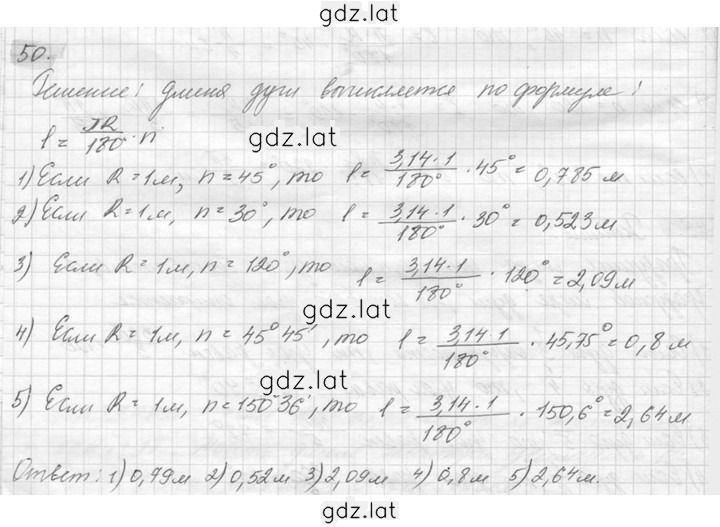 gdz.lat
50.
Решение: длина дуги вычисляется по формуле:
l = πR/180° · n
gdz.lat
1) Если R = 1 м, n = 45°, то l = 3,14·1/180° · 45° = 0,785 м
2) Если R = 1 м, n = 30°, то l = 3,14·1/180° · 30° = 0,523 м
3) Если R = 1 м, n = 120°, то l = 3,14·1/180° · 120° = 2,09 м
gdz.lat
4) Если R = 1 м, n = 45°45', то l = 3,14·1/180° · 45,75° = 0,8 м
gdz.lat
5) Если R = 1 м, n = 150°36', то l = 3,14·1/180° · 150,6° = 2,64 м
Ответ: 1) 0,79 м 2) 0,52 м 3) 2,09 м 4) 0,8 м 5) 2,64 м.
gdz.lat